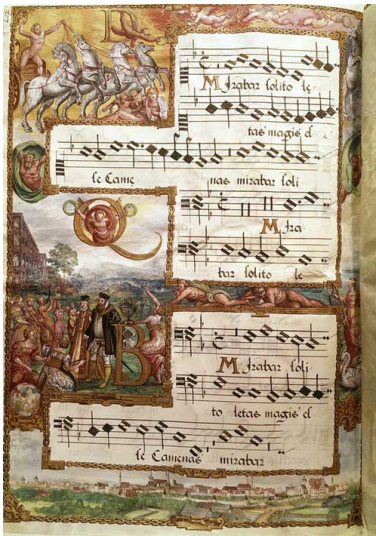 Mirabar solito le
tas magis el
se Came nas mirabar soli
Mira
bar solito le
Mirabar soli
to letas magis el
se Camenas mirabar